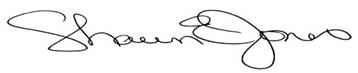 Shawn Jones